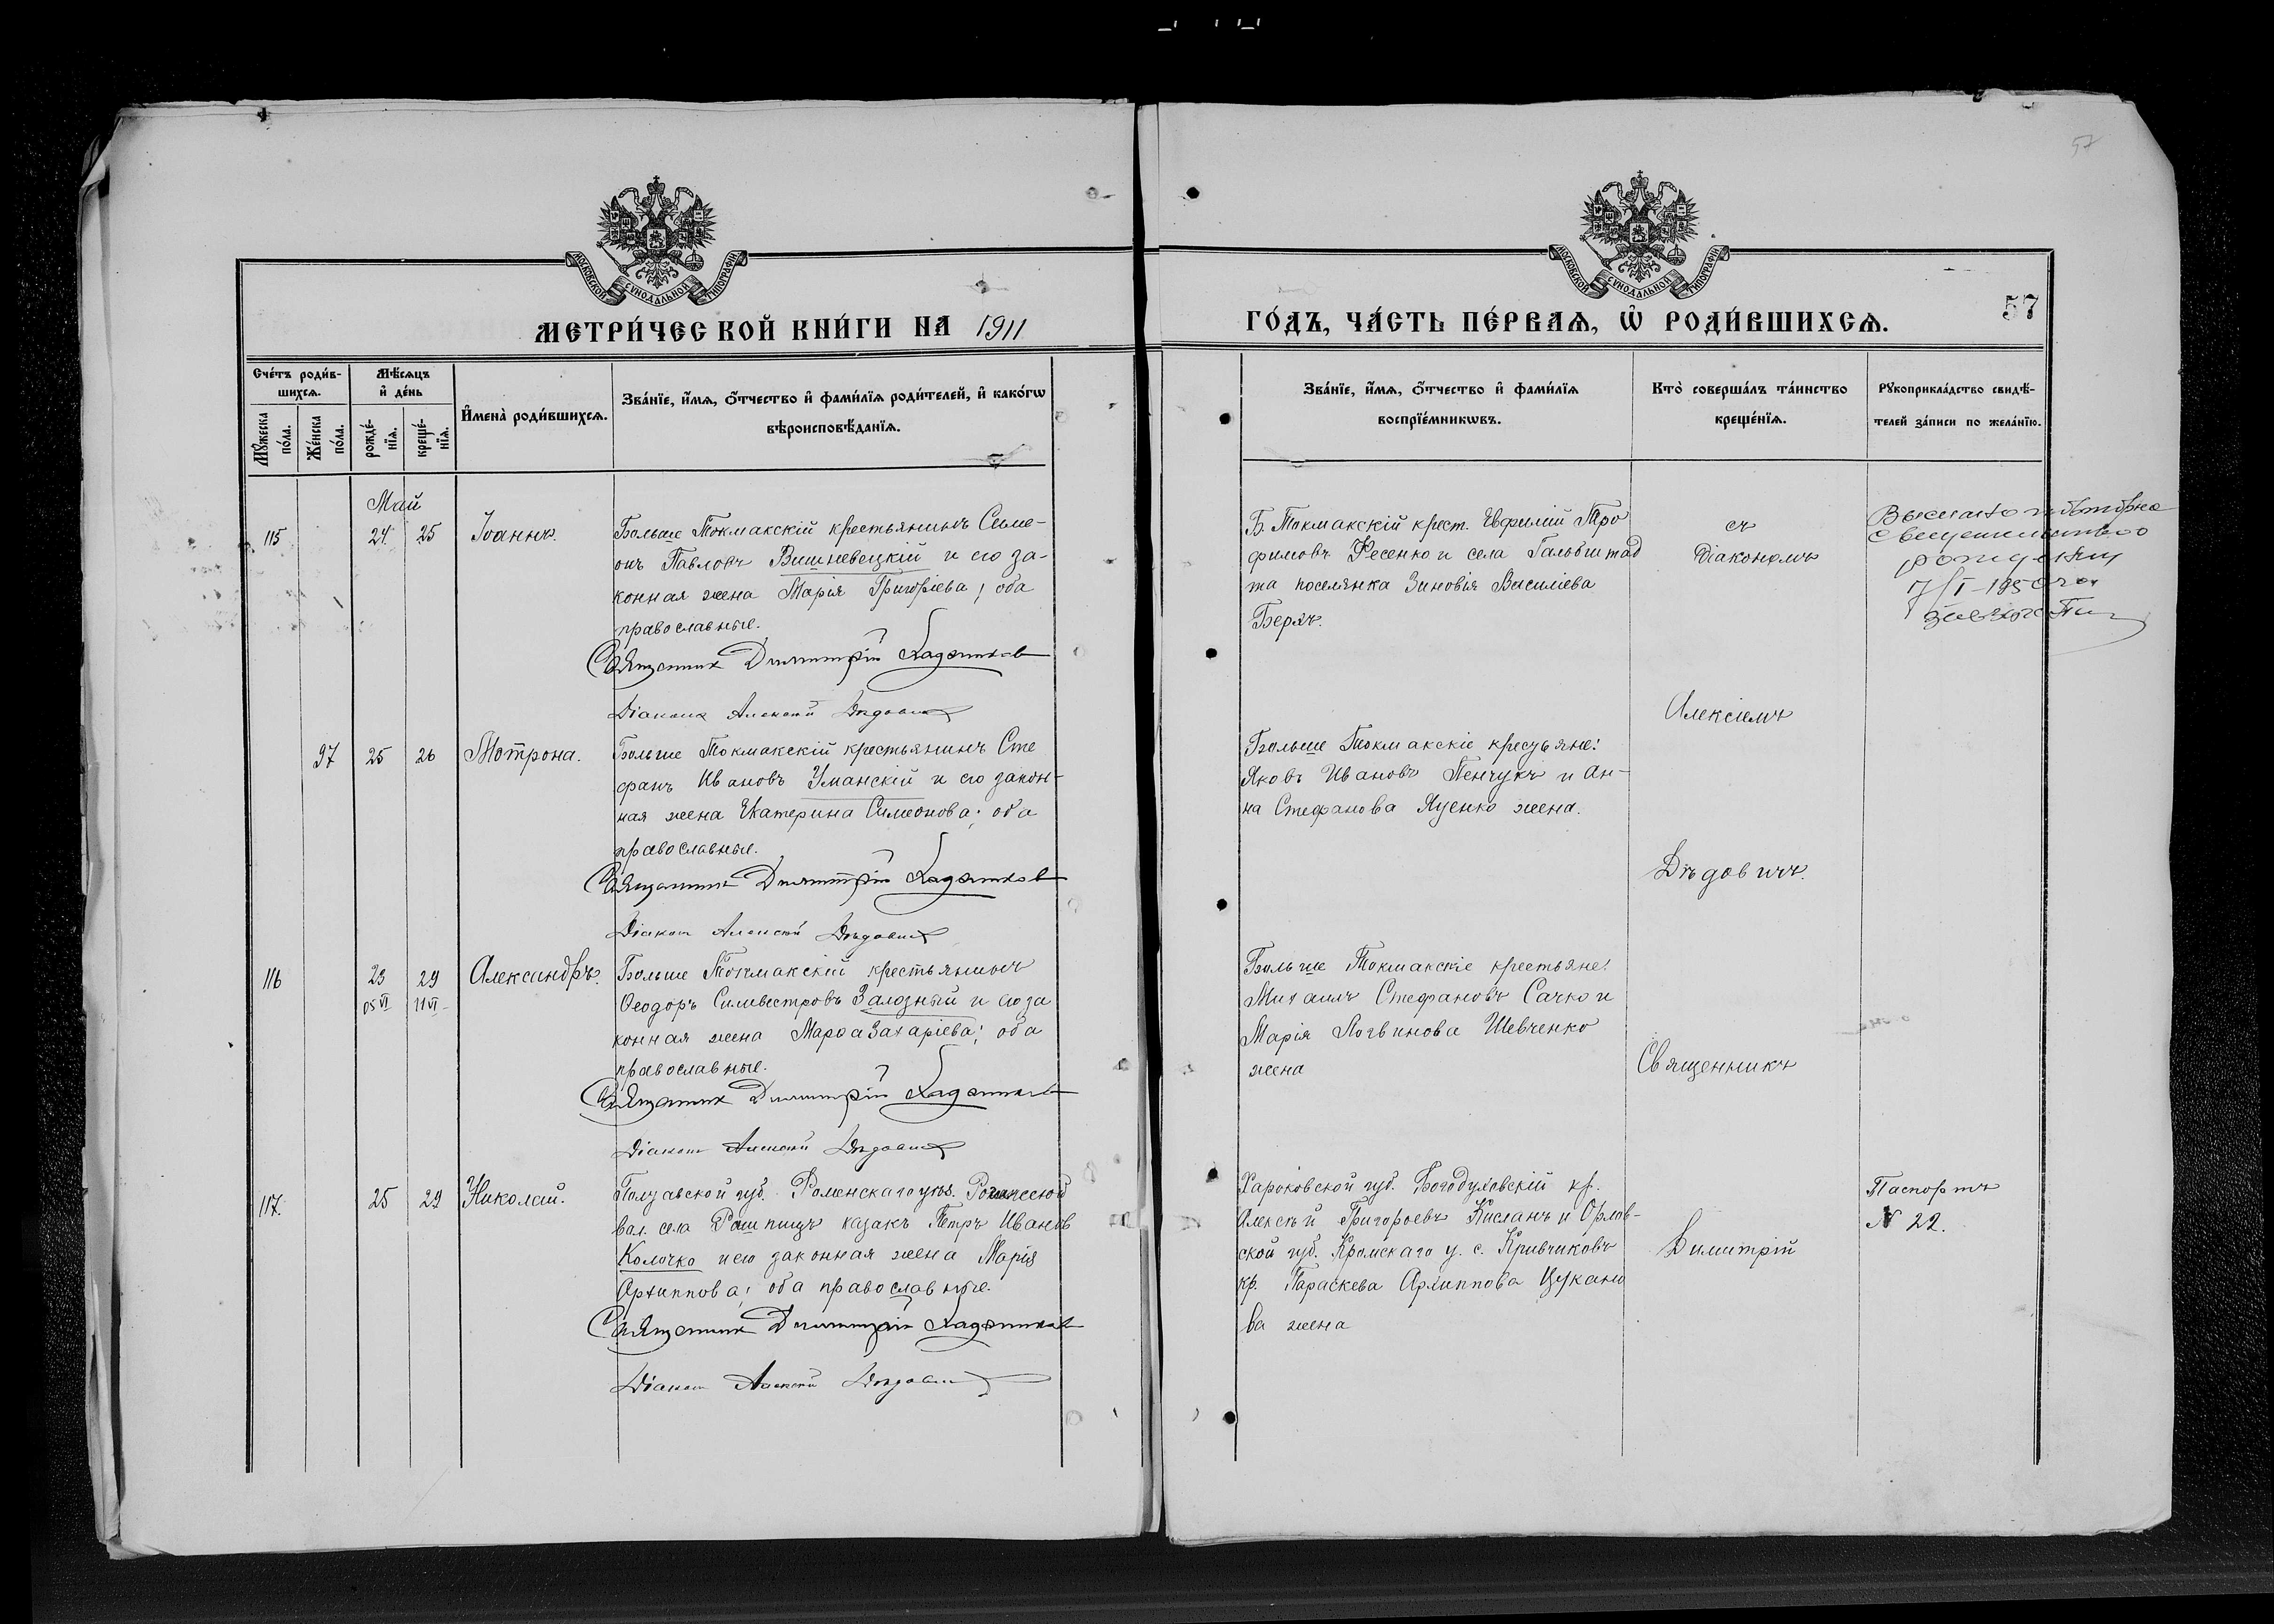 57
МОСКОВСКОЙ СУНОДАЛЬНОЙ ТИПОГРАФІИ
МОСКОВСКОЙ СУНОДАЛЬНОЙ ТИПОГРАФІИ
МЕТРИ́ЧЕСКОЙ КНИ́ГИ НА 1911
ГО́ДЪ, ЧА́СТЬ ПЕ́РВАѦ, Ѡ҆ РОДИ́ВШИХСѦ.
57
Сче́тъ роди́в-
шихсѧ.
Мꙋ́жеска по́ла.
Же́нска по́ла.
Мѣ́сѧцъ
и҆ де́нь
рожде́-
нїѧ.
креще́-
нїѧ.
И҆мена̀ роди́вшихсѧ.
Зва́нїе, и҆́мѧ, ѻ҆́тчество и҆ фами́лїѧ роди́телей, и҆ како́гѡ
вѣроисповѣ́данїѧ.
Зва́нїе, и҆́мѧ, ѻ҆́тчество и҆ фами́лїѧ
воспрїе́мникѡвъ.
Кто̀ соверша́лъ та́инство
креще́нїѧ.
Рꙋкоприкла́дство свидѣ́-
телей за́писи по жела́нїю.
Май
115
24
25
Іоаннъ.
Больше Токмакскій крестьянинъ Симе-
онъ Павловъ Вишневецкій и его за-
конная жена Марія Григоріева; оба
православные.
Священник Димитрій
Діаконъ Алексѣй Дѣдовичъ
Б. Токмакскій крест. Евфимій Тро
фимовъ Фесенко и села Гальбштад
та поселянка Зиновія Василіева
Берхъ.
съ
Діакономъ
17/I-1950
97
25
26
Мотрона.
Больше Токмакскій крестьянинъ Сте
фанъ Ивановъ Уманскій и его закон-
ная жена Екатерина Симеонова; оба
православные.
Священник Димитрій
Діаконъ Алексѣй Дѣдовичъ
Больше Токмакскіе крестьяне:
Яковъ Ивановъ Пенчукъ и Ан-
на Стефанова Яценко жена.
Алексіемъ
Дѣдовичъ.
116
23
29
05 VI
11 VI
Александръ.
Больше Токмакскій крестьянинъ
Ѳеодоръ Силивестровъ Залозный и его за
конная жена Марѳа Захаріева; оба
православные.
Священник Димитрій
Діаконъ Алексѣй Дѣдовичъ
Больше Токмакскіе крестьяне:
Михаилъ Стефановъ Сачко и
Марія Логвинова Шевченко
жена
Священникъ
117.
25
29
Николай.
Полтавской губ. Роменскаго уѣз.
вол. села казакъ Петръ Иванов
Колочко и его законная жена Марія
Архиппова; оба православные.
Священник Димитрій
Діаконъ Алексѣй Дѣдовичъ
Харьковской губ. Богодуховскій кр.
Алексѣй Григорьевъ Кисланъ и Орлов-
ской губ. Кромскаго у. с. Кривчиковъ
кр. Параскева Архиппова Цукано
ва жена
Димитрій
Паспортъ
№ 22.